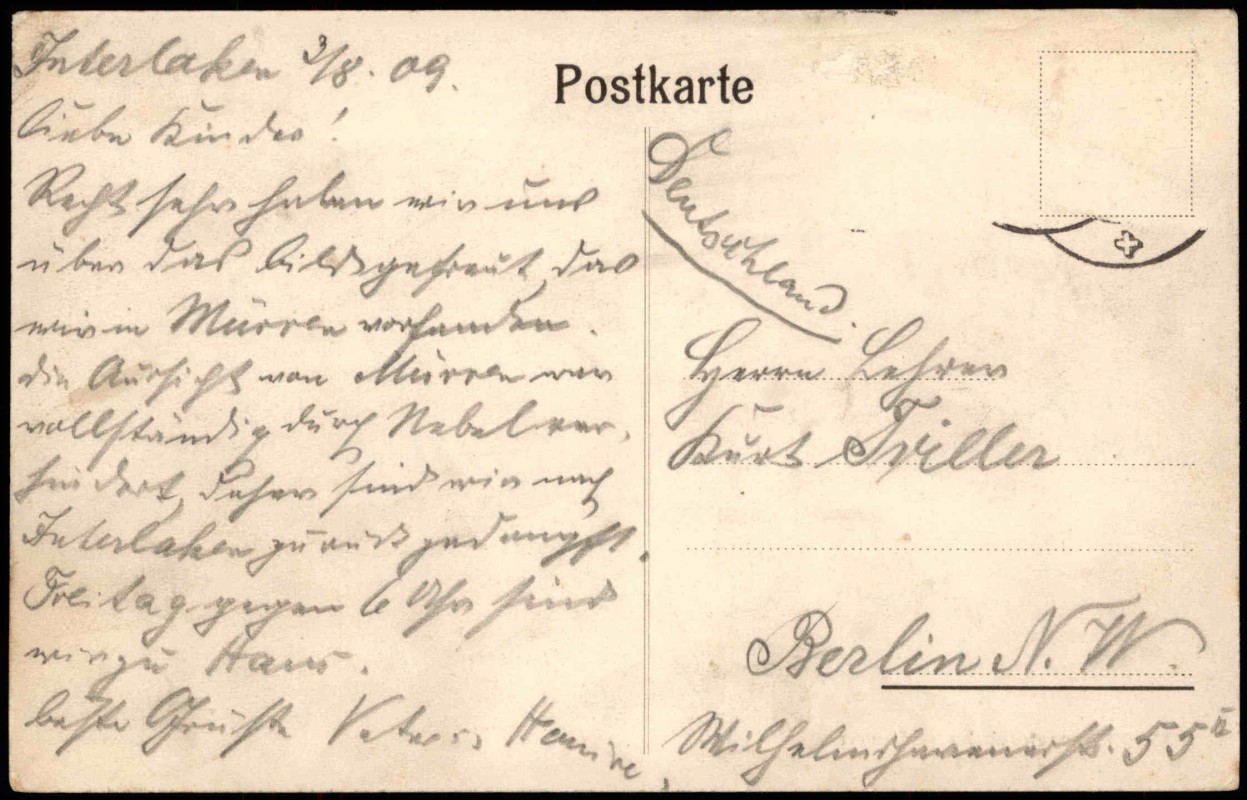 Interlaken 3/8. 09.
Liebe Kinder!
Recht sehr haben wir uns
über das Bild gefreut, das
wir in Mürren vorfanden.
die Aussicht von Mürren war
vollständig durch Nebel ver-
hindert, daher sind wir nach
Interlaken zurück gedampft.
Freitag gegen 6 Uhr sind
wir zu Haus.
beste Grüße Vater
Postkarte
Deutschland.
Herrn Lehrer
Kurt Triller
Berlin N. W.
Wilhelmshavenerstr. 55 II